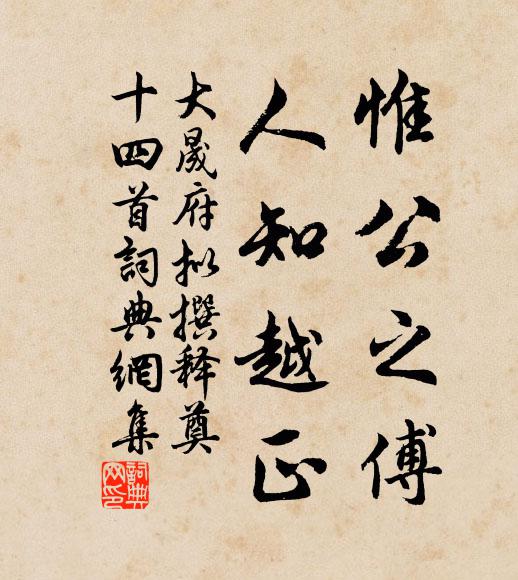 惟公之傅
人知越正
大晟府拟撰释奠
十四首詞典網集
詞典
网印